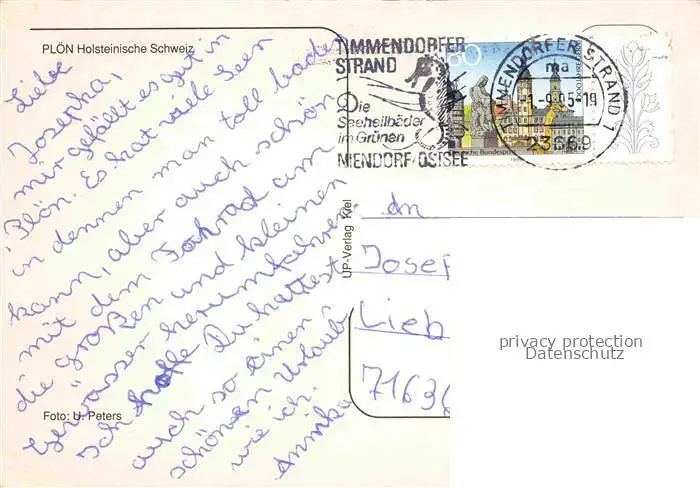 PLÖN Holsteinische Schweiz
Liebe
Josepha,
mir gefällt es gut in
Plön. Es hat viele Seen
in dennen man toll baden
kann, aber auch schön
mit dem Fahrad um
die großen und kleinen
Gewässer herumfahren.
Ich hoffe Du hattest
auch so einen
schönen Urlaub
wie ich.
Annika
Foto: U. Peters
UP-Verlag Kiel
TIMMENDORFER
STRAND
Die
Seeheilbäder
im Grünen
NIENDORF/OSTSEE
TIMMENDORFER STRAND 1
ma
-1.-9.95-19
23669
60
Deutsche Bundespost
An
Josep
Lieb
71636
privacy protection
Datenschutz